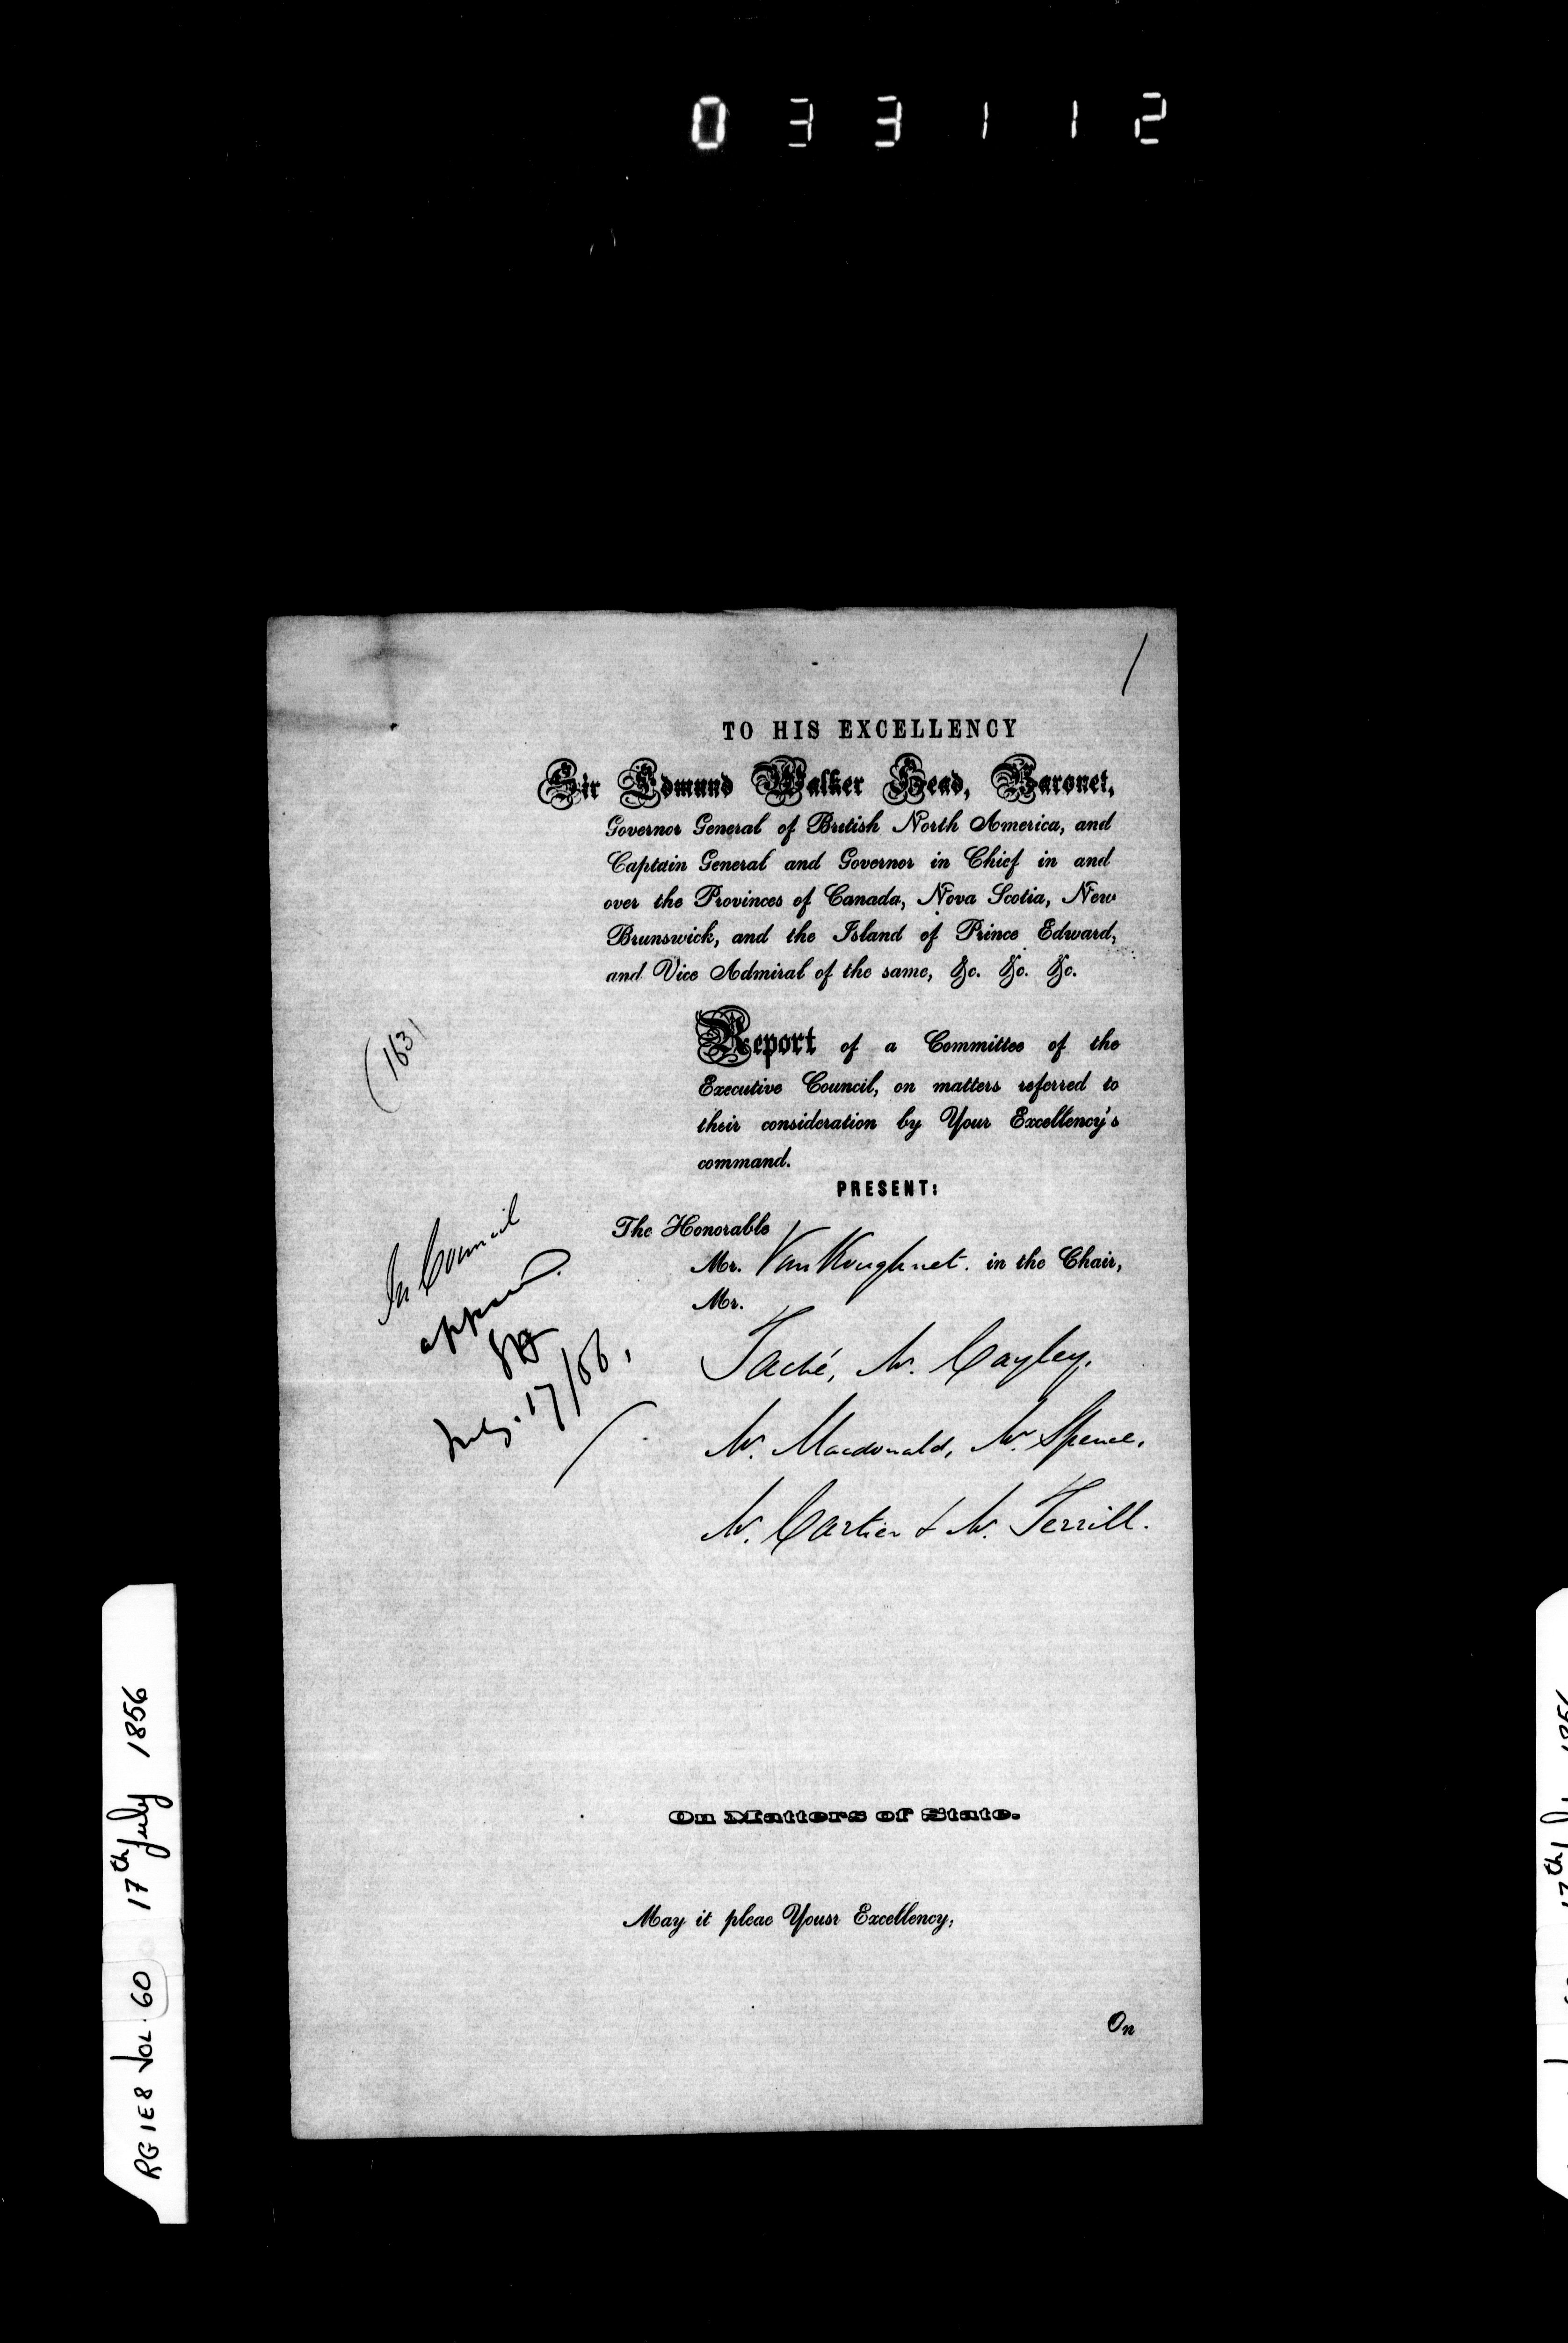 033112
/
TO HIS EXCELLENCY
Sir Edmund Walker Head, Baronet,
Governor General of British North America, and
Captain General and Governor in Chief in and
over the Provinces of Canada, Nova Scotia, New
Brunswick, and the Island of Prince Edward,
and Vice Admiral of the same, &c. &c. &c.
(163)
Report of a Committee of the
Executive Council, on matters referred to
their consideration by Your Excellency's
command.
PRESENT:
The Honorable
Mr. VanKoughnet. in the Chair,
Mr.
Taché, Mr. Cayley,
Mr. Macdonald, Mr. Spence,
Mr. Cartier & Mr. Terrill.
In Council
approved.
July. 17/56,
On Matters of State.
May it pleae Yousr Excellency,
On
RG 1E8 Vol. 60 17th July 1856